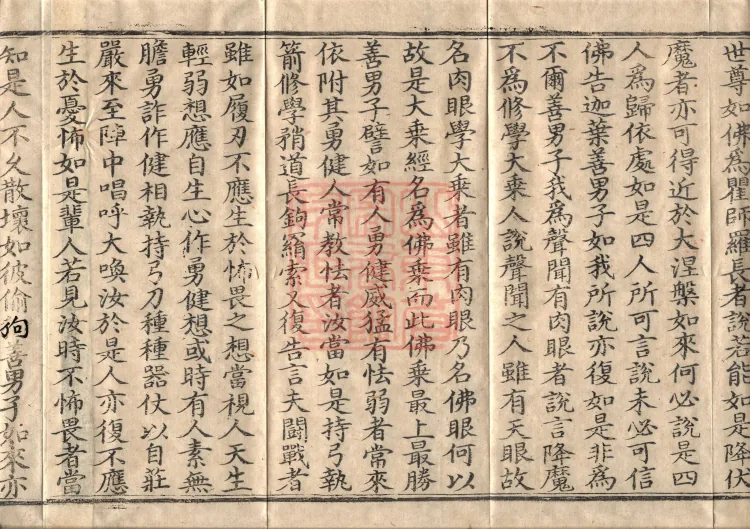 世尊如佛為瞿師羅長者說若能如是降伏
魔者亦可得近於大涅槃如來何必說是四
人為歸依處如是四人所可言說未必可信
佛告迦葉善男子如我所說亦復如是非為
不爾善男子我為聲聞有肉眼者說言降魔
不為修學大乘人說聲聞之人雖有天眼故
名肉眼學大乘者雖有肉眼乃名佛眼何以
故是大乘經名為佛乘而此佛乘最上最勝
善男子譬如有人勇健威猛有怯弱者常來
依附其勇健人常教怯者汝當如是持弓執
箭修學矟道長鉤羂索又復告言夫鬪戰者
雖如履刃不應生於怖畏之想當視人天生
輕弱想應自生心作勇健想或時有人素無
膽勇詐作健相執持弓刀種種器仗以自莊
嚴來至陣中唱呼大喚汝於是人亦復不應
生於憂怖如是輩人若見汝時不怖畏者當
知是人不久散壞如彼偷狗善男子如來亦